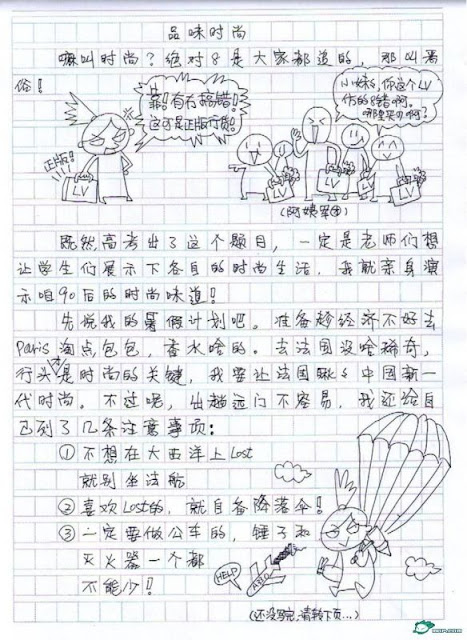 品味时尚
嘛叫时尚？绝对8是大家都道的，那叫恶
俗！
靠！有冇搞错！
这可是正版行货！
正版！
LV
小妹，你这个LV
仿的8错啊。
哪里买8啊？
LV
LV
LV
（阿姨军团）
既然高考出了这个题目，一定是老师们想
让学生们展示下各自的时尚生活，我就亲身演
示咱90后的时尚味道！
先说我的暑假计划吧。准备趁经济不好去
Paris淘点包包，香水啥的。去法国没啥稀奇，
行头才是时尚的关键，我要让法国瞅瞅中国新一
代时尚。不过呢，出趟远门不容易，我还给自
己列了几条注意事项：
①不想在大西洋上Lost
就别坐法航
②喜欢Lost的，就自备降落伞！
③一定要做公车的，锤子和
灭火器一个都
不能少！
HELP
（还没写完，请转下页...）